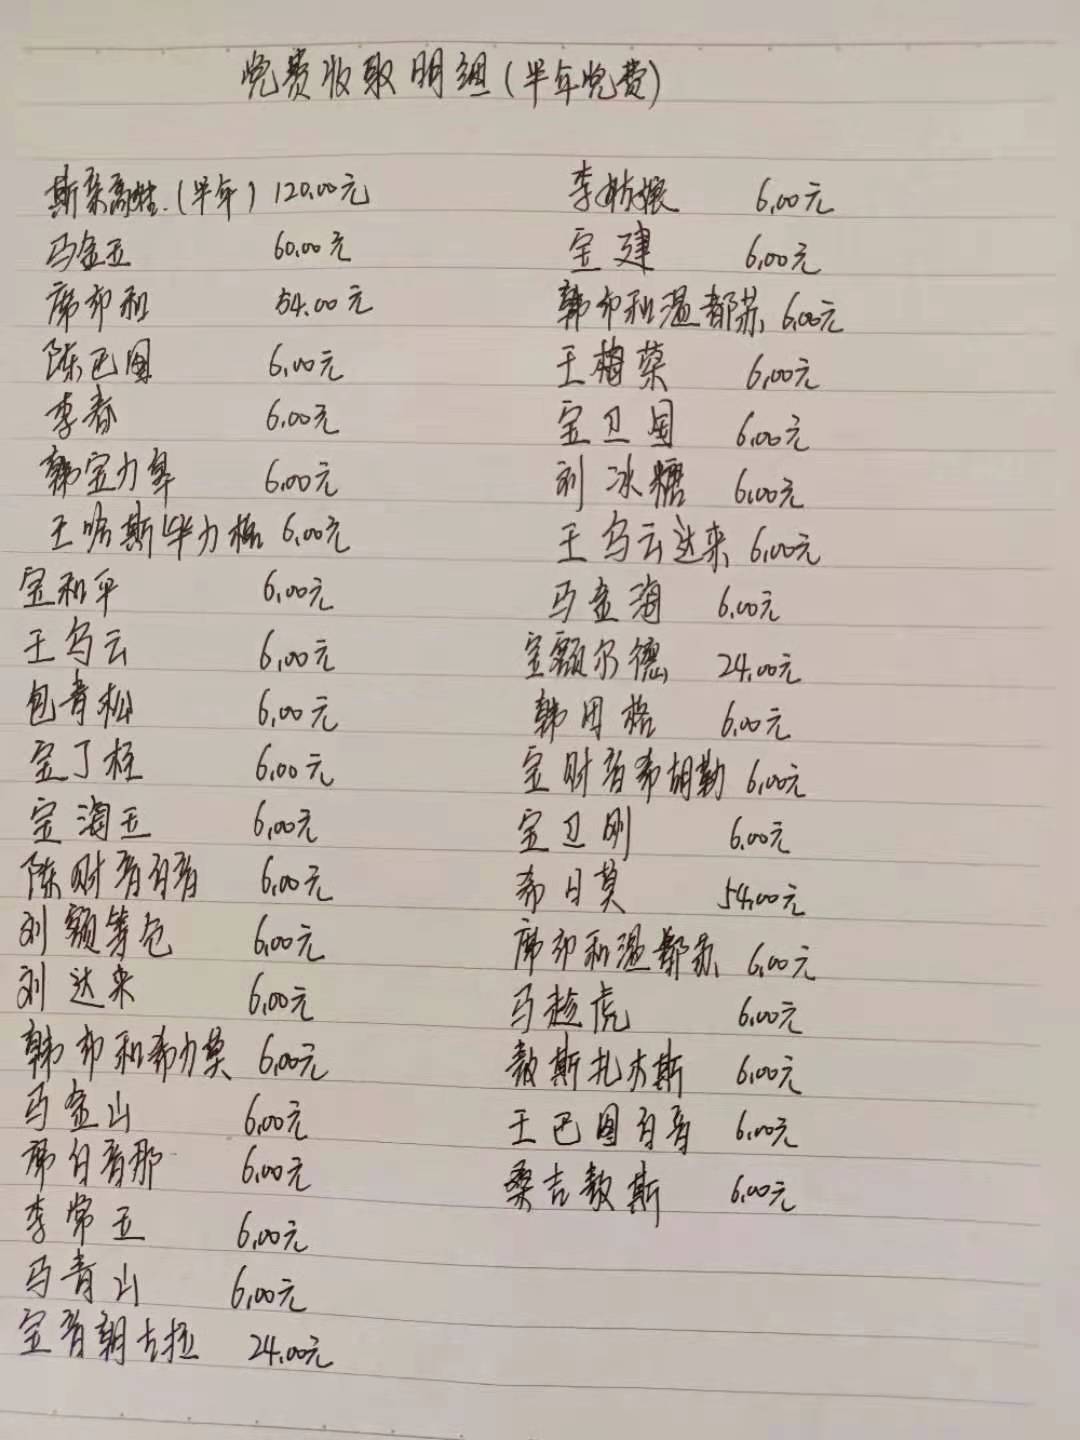 党费收取明细(半年党费)
斯琴高娃.(半年) 120.00元
马金玉 60.00元
席布和 54.00元
陈巴图 6.00元
李春 6.00元
韩宝力皋 6.00元
王哈斯毕力格 6.00元
宝和平 6.00元
王乌云 6.00元
包青松 6.00元
宝丁柱 6.00元
宝海玉 6.00元
陈财音白音 6.00元
刘额等仓 6.00元
刘达来 6.00元
韩布和希力莫 6.00元
马金山 6.00元
席白音那 6.00元
李常玉 6.00元
马青山 6.00元
宝音朝古拉 24.00元
李 6.00元
宝建 6.00元
韩布和温都苏 6.00元
王梅荣 6.00元
宝卫国 6.00元
刘冰糖 6.00元
王乌云达来 6.00元
马金海 6.00元
宝额尔德 24.00元
韩用格 6.00元
宝财音希胡勒 6.00元
宝卫刚 6.00元
希日莫 54.00元
席布和温都苏 6.00元
马趁虎 6.00元
敖斯扎木斯 6.00元
王巴图白音 6.00元
桑吉敖斯 6.00元